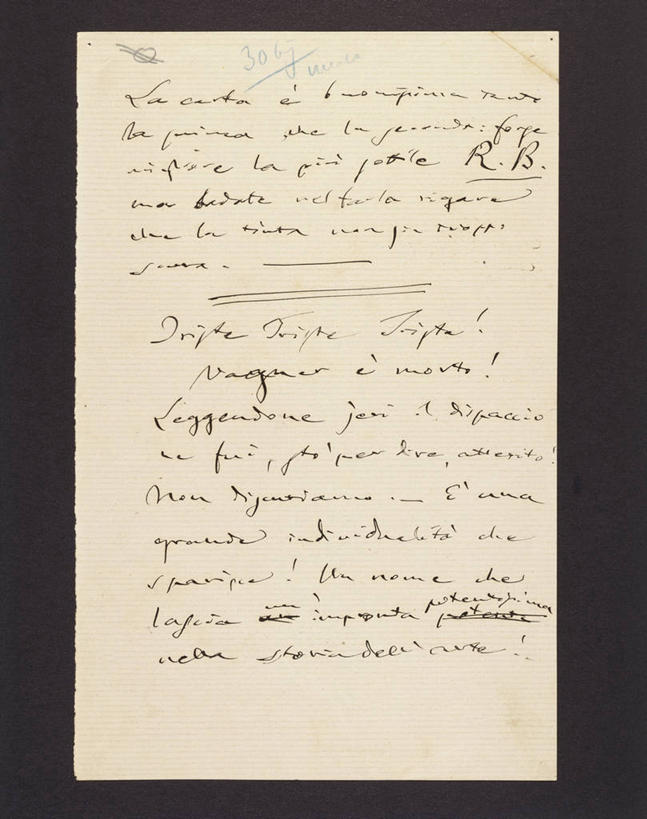 3067
La carta è buonissima tanto
la prima che la seconda: forse
migliore la più sottile R. B.
ma badate nel farla rigare
che la tinta non sia troppo
scura. —
Triste Triste Triste!
Vagner è morto!
Leggendone jeri il dispaccio
ne fui, sto' per dire, atterrito!
Non discutiamo. — È una
grande individualità che
sparisce! Un nome che
lascia un' impronta potentissima
potente
nella storia dell'arte!